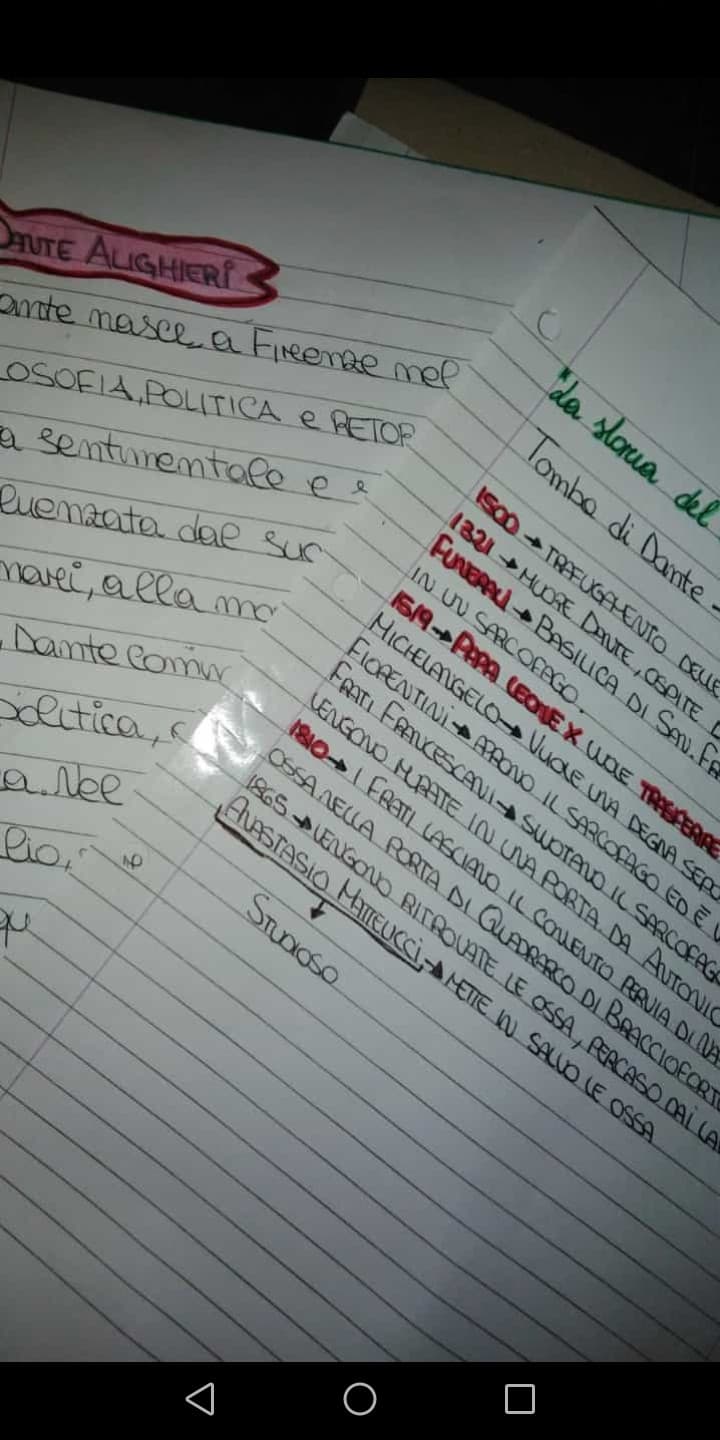 DANTE ALIGHIERI
ante nasce a Firenze nel
LOSOFIA, POLITICA e RETOR
a sentimentale e
luenzata dal suo
mari, alla mo
, Dante comin
politica,
a. Nel
lio,
qu
"La storia del
Tomba di Dante
1500 → TRAFUGAMENTO DELLE
1321 → MUORE DANTE, OSPITE
FUNERALI → BASILICA DI SAN. FRA
IN UN SARCOFAGO.
1519 → PAPA LEONE X VUOLE TRASFERIRE
MICHELANGELO → VUOLE UNA DEGNA SEPO
FIORENTINI → APRONO IL SARCOFAGO ED È
FRATI FRANCESCANI → SVUOTANO IL SARCOFAGO
VENGONO MURATE IN UNA PORTA. DA ANTONIO
1810 → I FRATI LASCIANO IL CONVENTO PER VIA DI NA
OSSA NELLA PORTA DI QUADRARCO DI BRACCIOFORT
1865 → VENGONO RITROVATE LE OSSA, PER CASO DAI LA
ANASTASIO MATTEUCCI → METTE IN SALVO LE OSSA
STUDIOSO